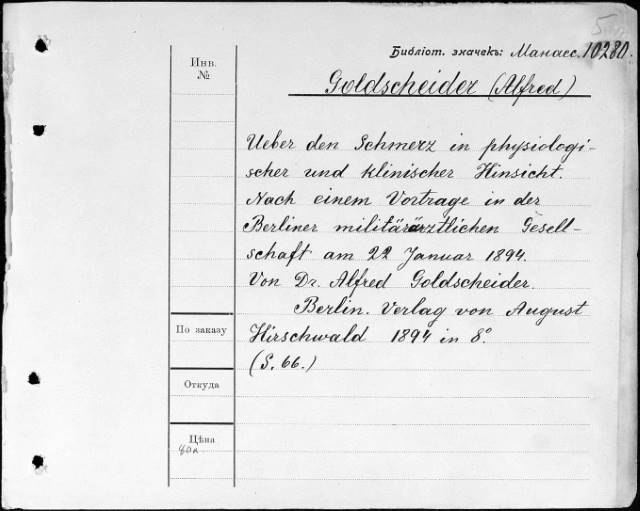 5
Библіот. значекъ: Манасс. 10280.
Инв.
№
Goldscheider (Alfred)
Ueber den Schmerz in physiologi-
scher und klinischer Hinsicht.
Nach einem Vortrage in der
Berliner militärärztlichen Gesell-
schaft am 22 Januar 1894.
Von Dr. Alfred Goldscheider.
Berlin. Verlag von August
Hirschwald 1894 in 8°.
(S. 66.)
По заказу
Откуда
Цѣна